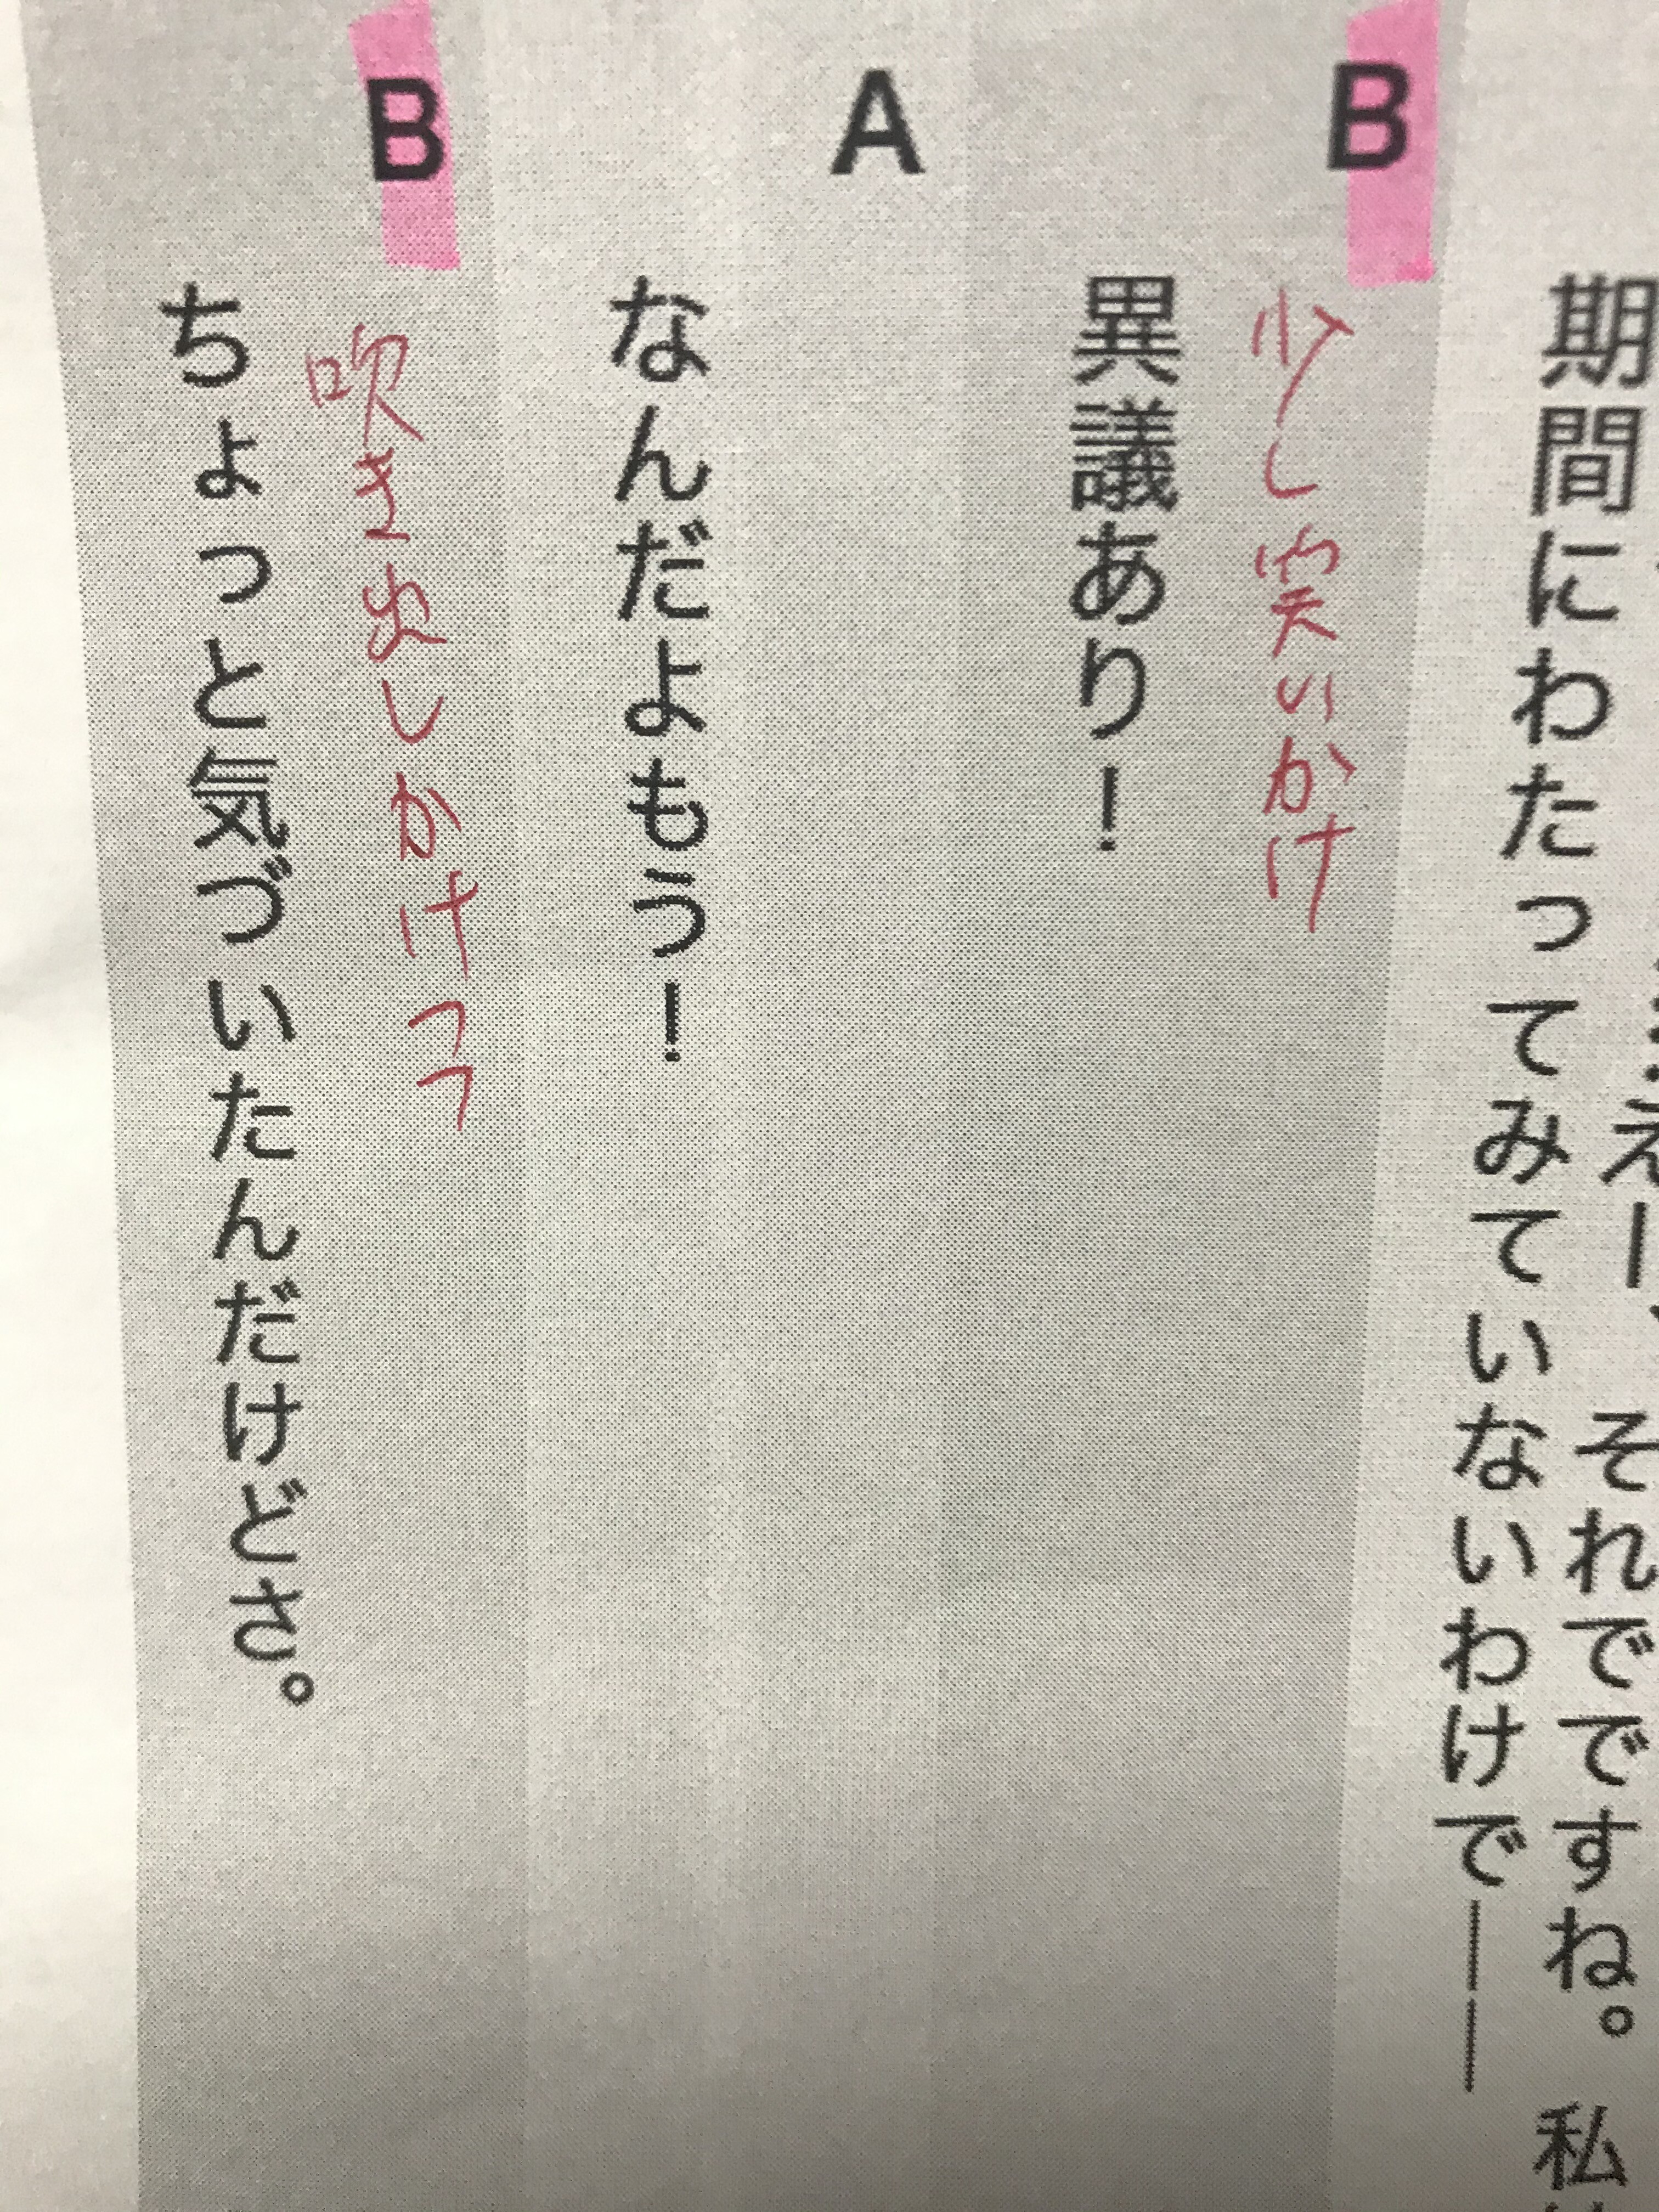 えー、それでですね。私
期間にわたってみていないわけで――
B
少し笑いかけ
異議あり!
A
なんだよもう!
B
吹き出しかけつつ
ちょっと気づいたんだけどさ。